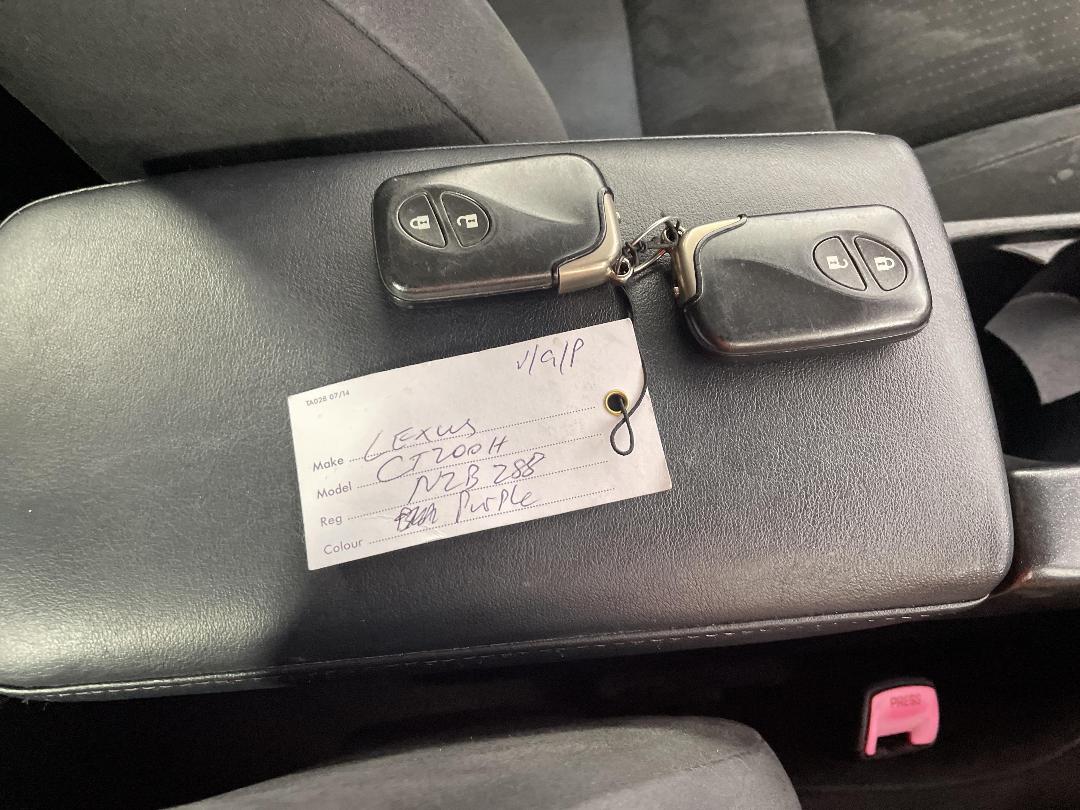 V/G/P
TA028 07/14
Make LEXUS
Model CT200H
Reg NZB 288
Colour Purple
PRESS